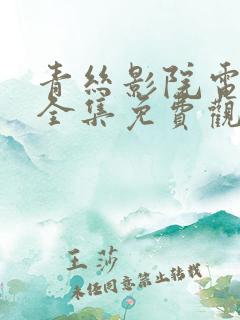 青絲影院電
全集免費觀
王莎
未经同意禁止转载